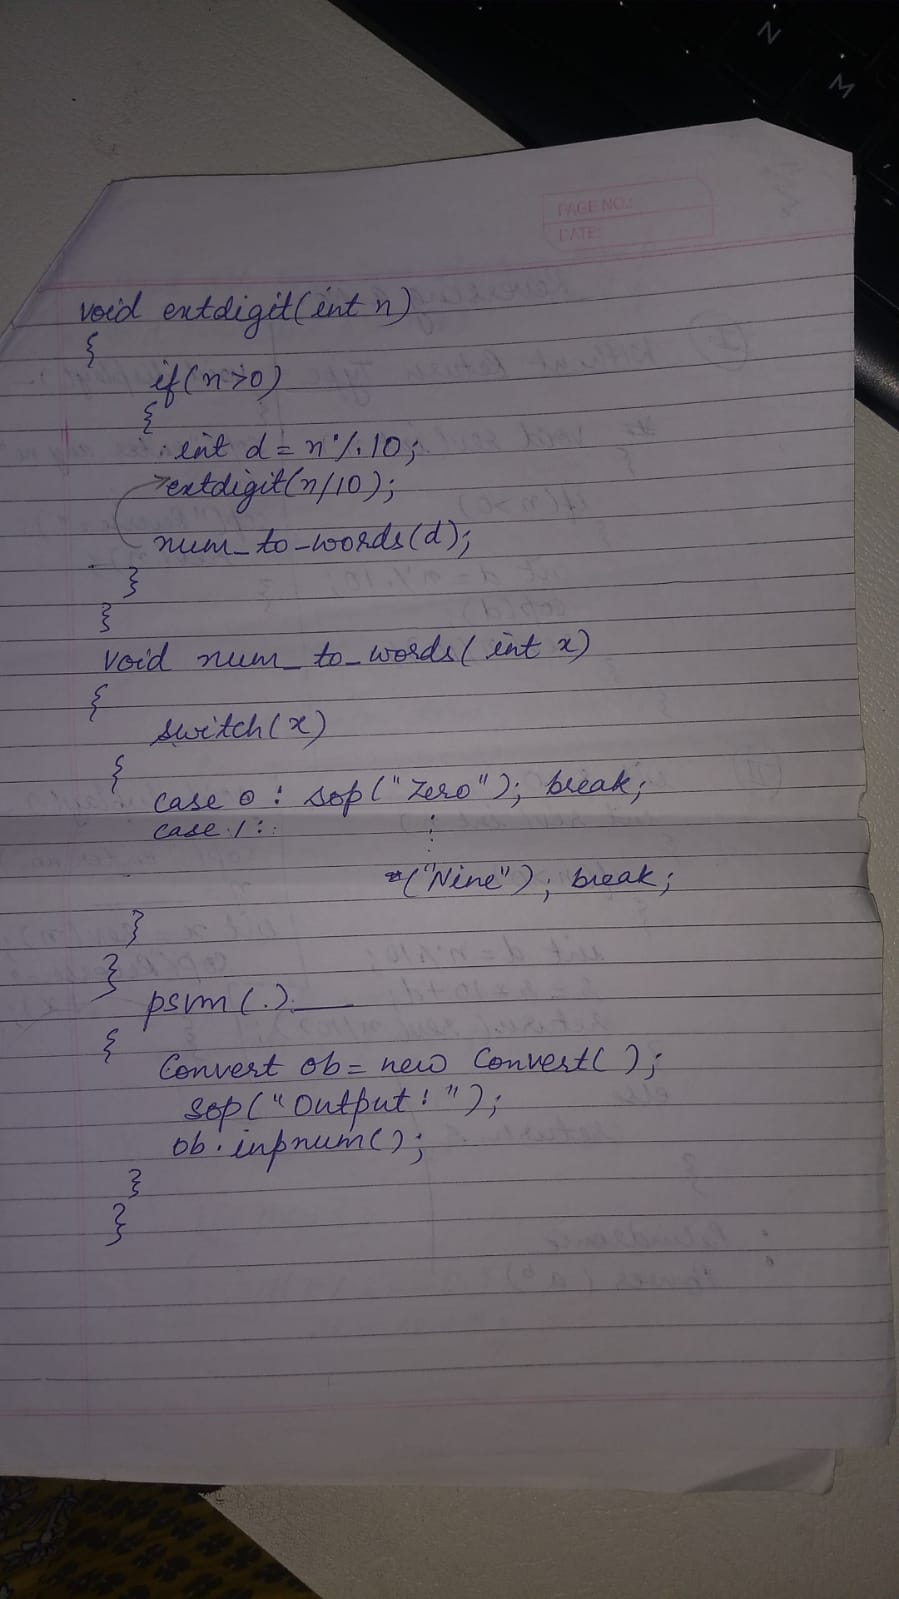 N
M
PAGE NO.:
DATE:
void extdigit(int n)
{
if(n>0)
{
int d = n%10;
extdigit(n/10);
num_to_words(d);
}
}
void num_to_words(int x)
{
switch(x)
{
case 0 : sop("Zero"); break;
case 1 :
("Nine"); break;
}
}
psvm(.)
{
Convert ob = new Convert( );
sop("Output : ");
ob.inpnum();
}
}